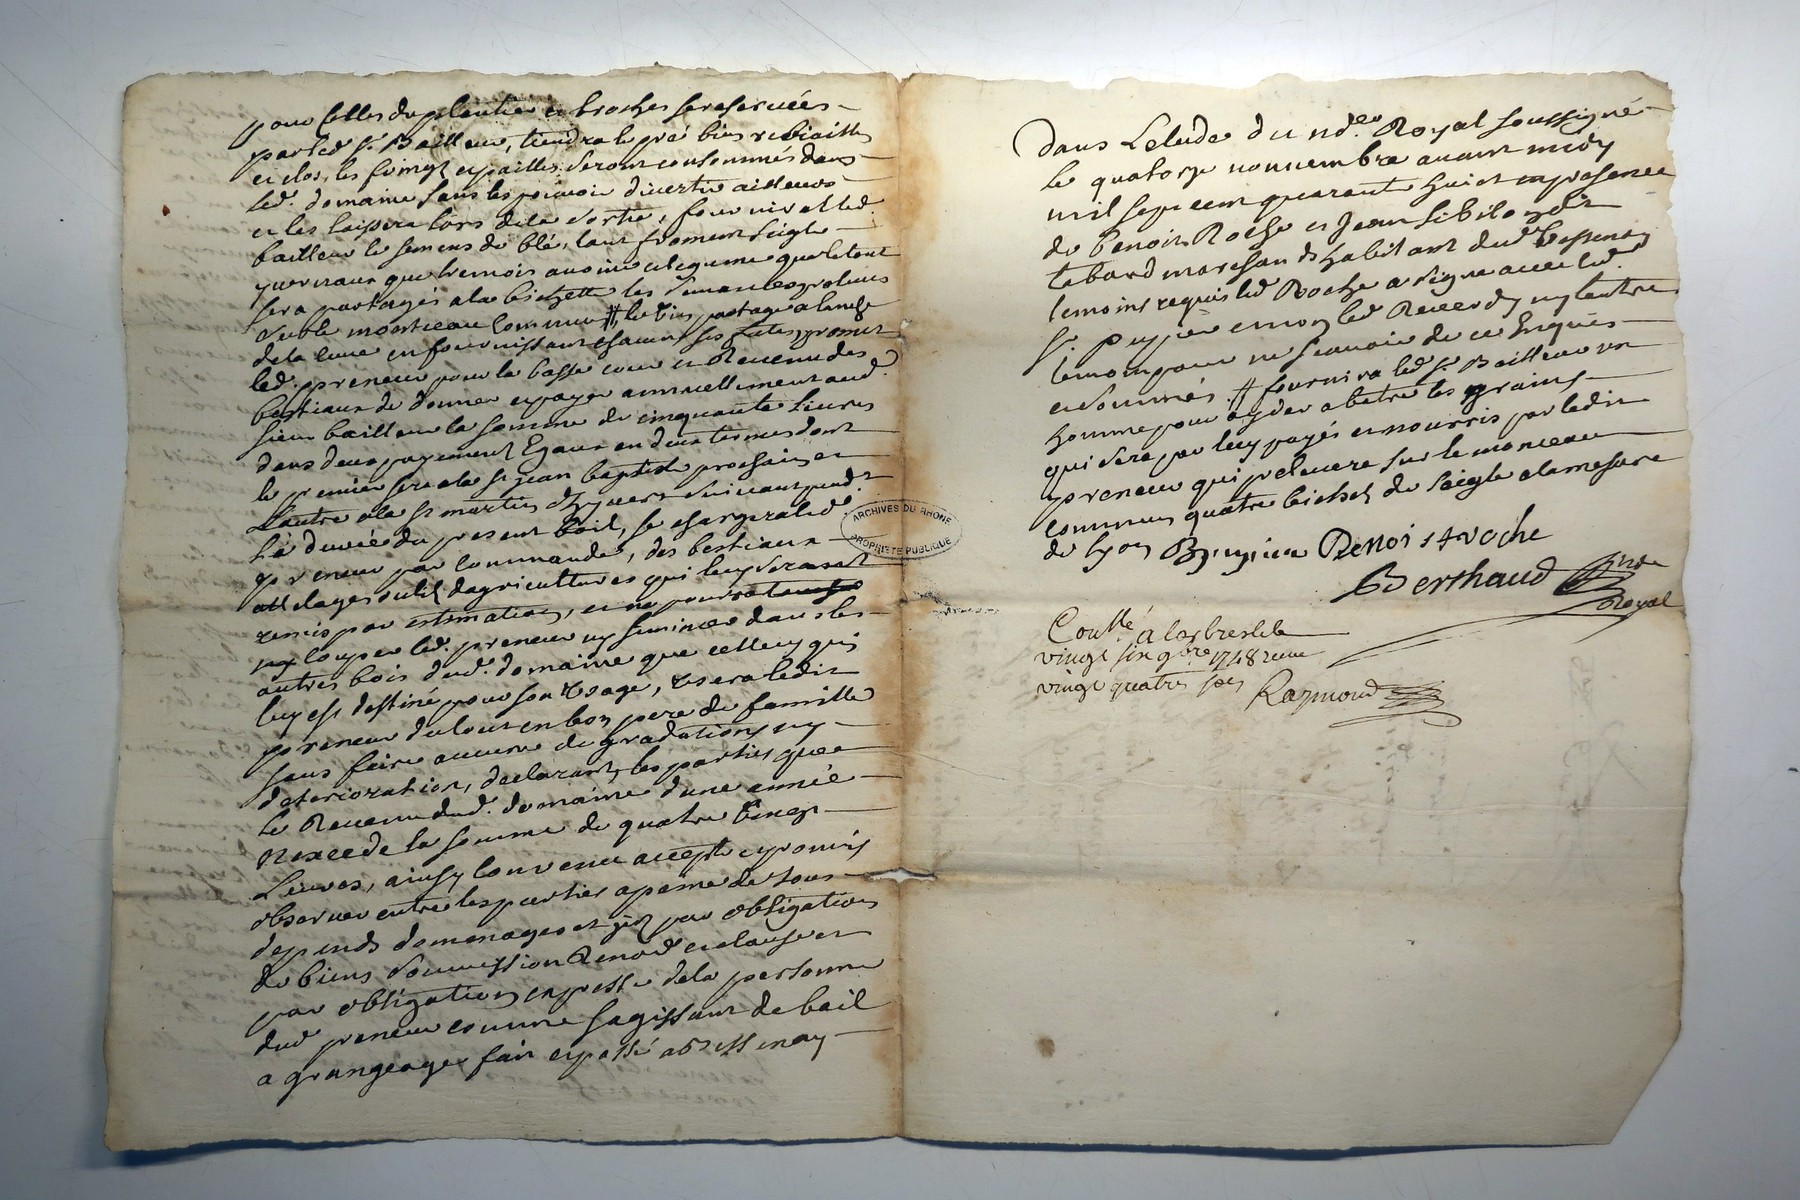 pour celles du plantier et broches se reservées
par led. Sr. Bailleur, tiendra le pré bien rebiaillé
et clos, les foings et pailles seront consommés dans
led. domaine sans les pouvoir divertir ailleurs
et les laissera lors de la sortie, fournira led.
bailleur le semens de blé, tant froment seigle
que tremois avoine et legume que le tout
sera partagés a la bichette les semances prelevés
sur le monceau commun # le vin partagé a l'anche
de la cuve en fournissant chacun ses futes, promet
led. preneur pour la basse cour et Revenu des
bestiaux de donner et payer annuellement aud.
sieur bailleur la somme de cinquante Livres
dans deux payement Egaux en deux termes dont
le premier sera a la st jean baptiste prochain et
L'autre a la st martin d'hyvert suivant pendt
La durée du present bail, se chargera led.
preneur par commande, des bestiaux
attelages outils d'agricultures qui luy seront
remis par estimation, et ne pourra
couper led. preneur ny feminer dans les
autres bois dud. domaine que celluy qui
luy est destiné pour son usage, usera ledit
preneur du tout en bon pere de famille
sans faire aucune degradations ny
deterioration, declarant les parties que
le Revenu dud. domaine d'une année
N'excede la somme de quatre vingt
Livres, ainsy convenu accepté et promis
observer entre les parties a peine de tous
depends domages et par obligation
de biens soumission Renond et clauses et
par obligation expresse de la personne
dud preneur comme s'agissant de bail
a grangeage fait et passé a Bessenay
dans L'etude du ndre Royal soussigné
le quatorze nouvembre avant midy
mil sept cent quarante huict en presence
de benoit Roche et Jean
marchands habitant dud Bessenay
temoins requis led Roche a signé avec led.
Sr. et non led ny l'autre
temoin pour ne sçavoir de ce Enquis
et sommés # fournira led Sr. Bailleur un
homme pour ayder a batre les grains
qui sera par luy payés et nourris par ledit
preneur qui prelevera sur le monceau
commun quatre bichet de seigle a la mesure
de Lyon Benoist roche
Berthaud nre
Royal
Conllé a larbresle le
vingt six 9bre 1748 reçu
vingt quatre sols Raymond
ARCHIVES DU RHONE
PROPRIÉTÉ PUBLIQUE